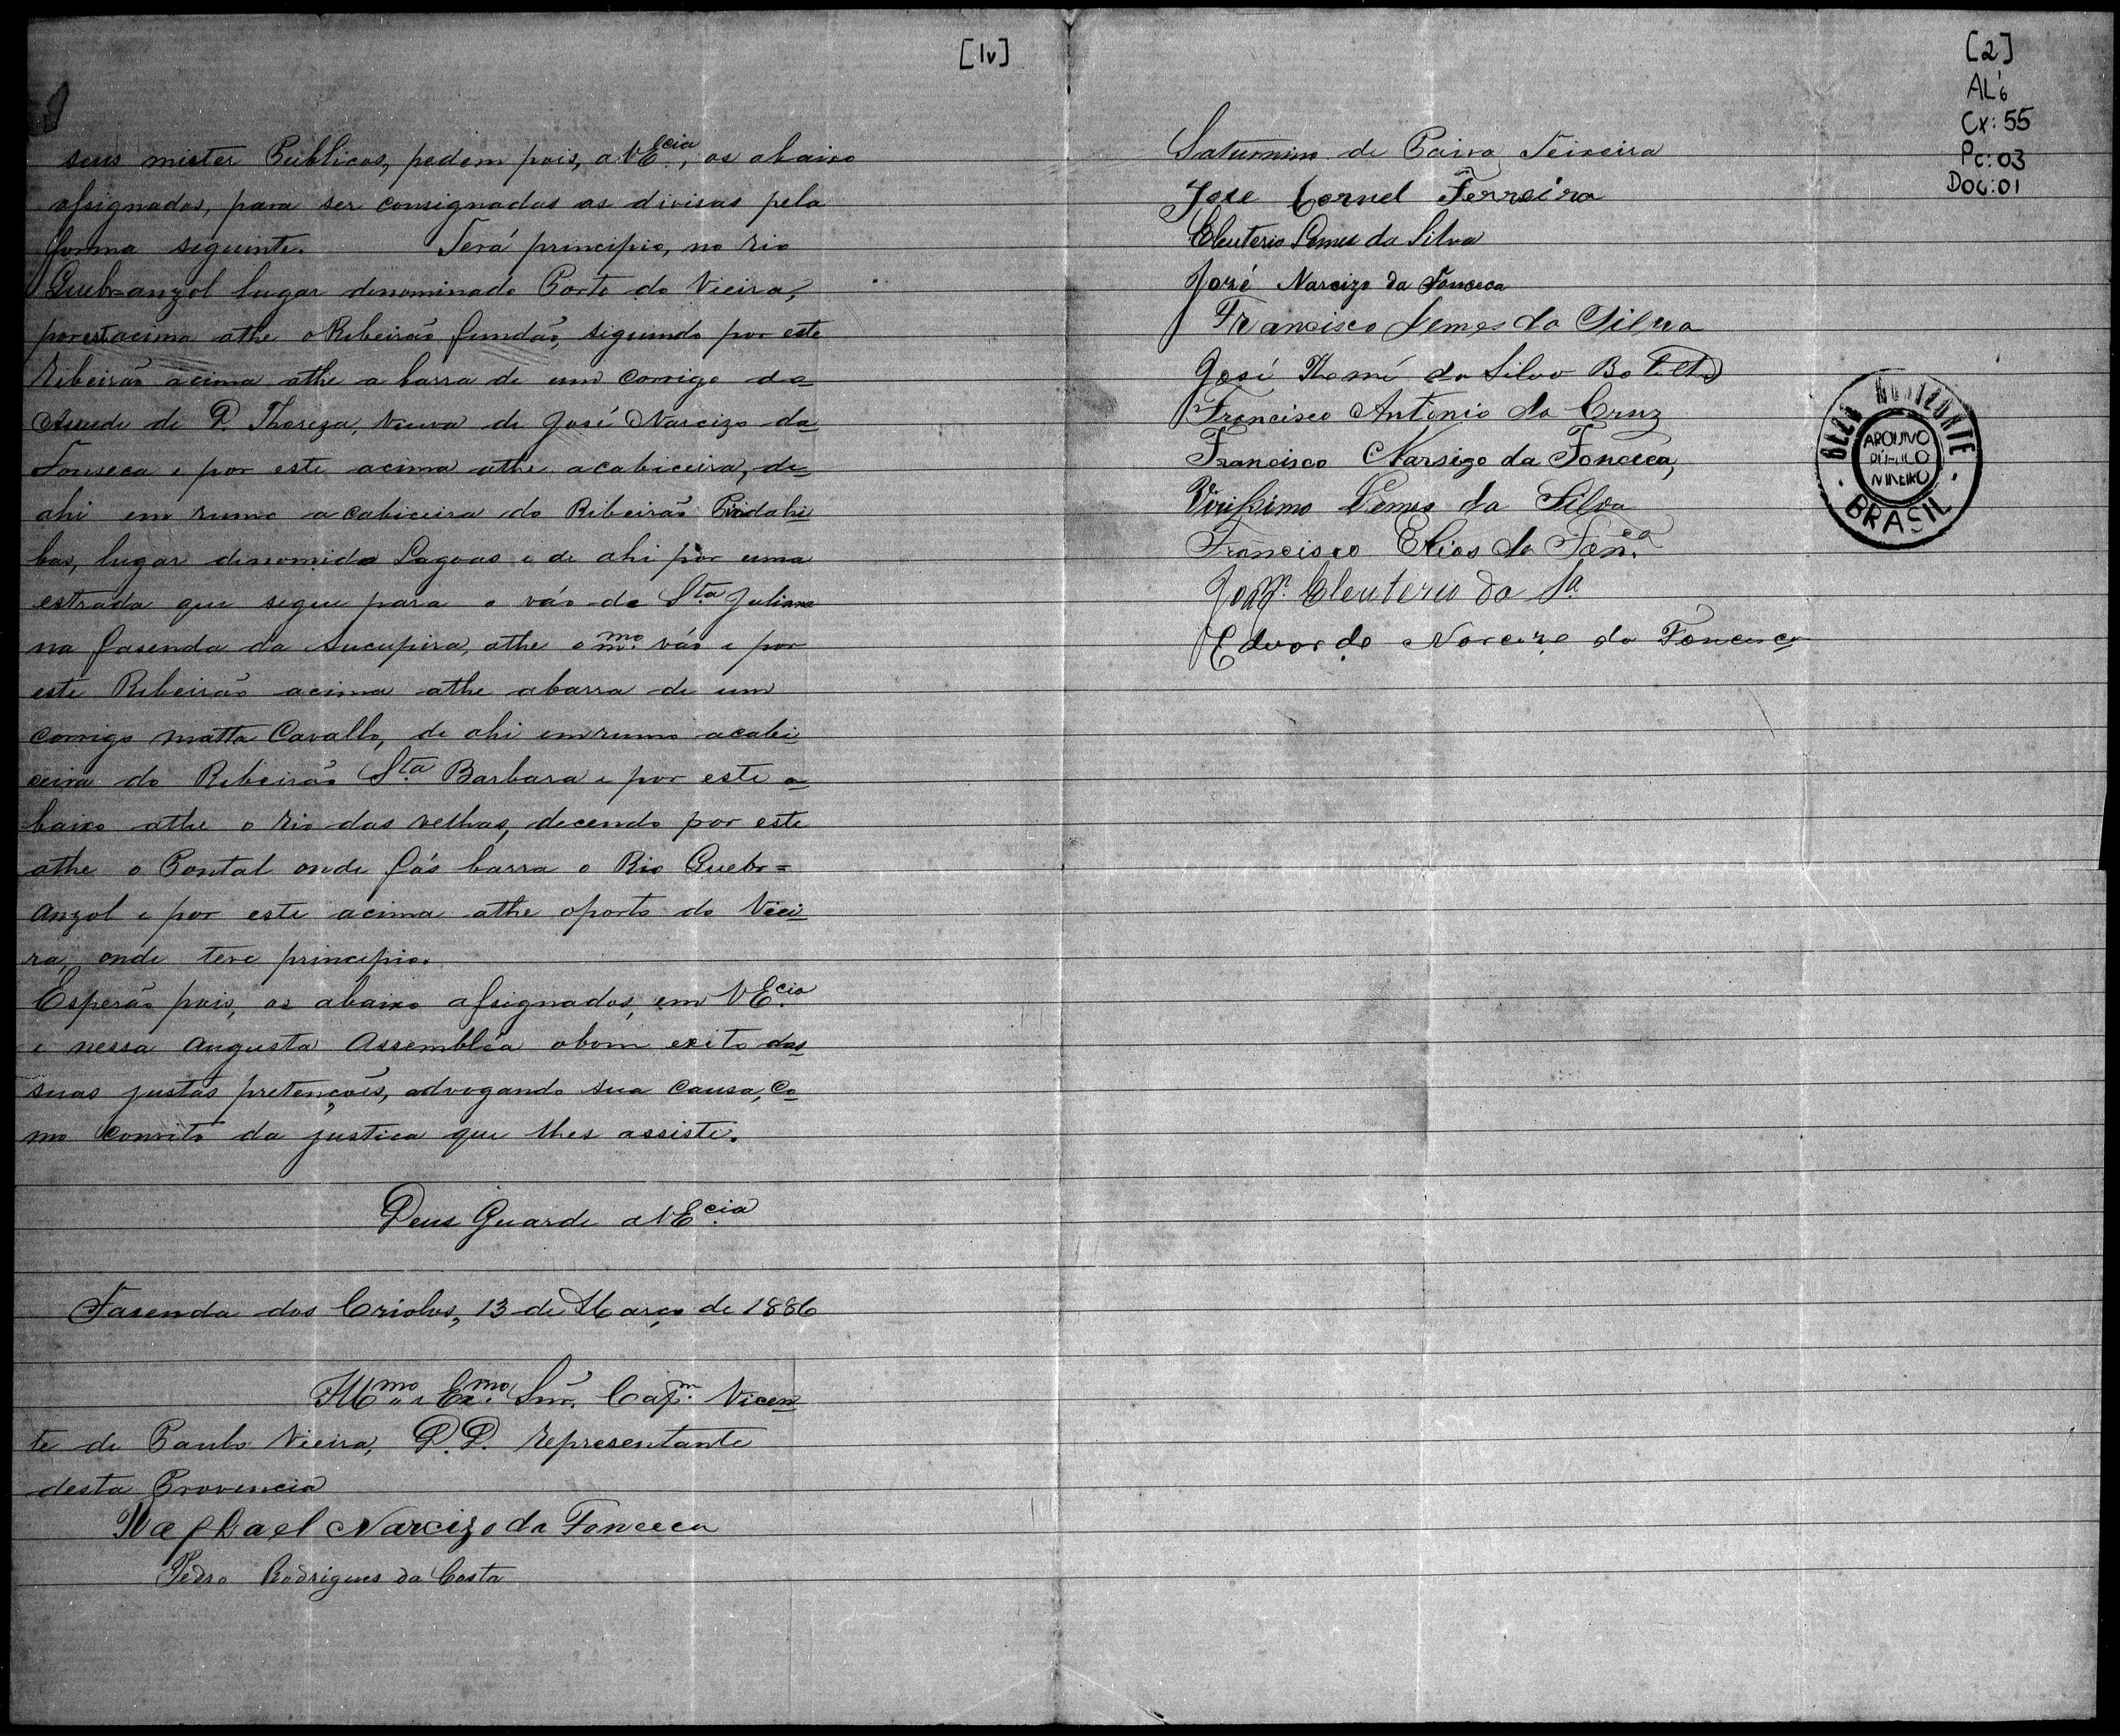 [1v]
seus mister Publicos, pedem pois, a VEcia, os abaixo
assignados, para ser consignadas as divisas pela
forma seguinte. Terá principio, no rio
Quebr=anzol lugar denominado Porto do Vieira,
por est acima athe o Ribeirão fundão, siguindo por este
Ribeirão acima athe a barra de um corrigo do
Assude de D. Thereza, Viuva de José Narcizo da
Fonseca e por este acima athe a cabiceira, de
ahi em rumo a cabiceira do Ribeirão Pindahi
bas, lugar denomido Lagoas e de ahi por uma
estrada que segue para o váo de Sta Juliana
na fasenda da Sucupira, athe o mmo váo e por
este Ribeirão acima athe abarra de um
corrigo matta Cavallo, de ahi em rumo a cabi
ceira do Ribeirão Sta Barbara e por este a
baixo athe o rio das velhas, decendo por este
athe o Pontal onde fás barra o Rio Quebr=
anzol e por este acima athe oporto do Viei
ra, onde teve principio.
Esperão pois, os abaixo assignados, em VEcia
e nessa Augusta Assembléa obom exito das
suas justas pretenções, advogando sua causa, Co
mo convito da justica que lhes assiste.
Deus Guarde a VEcia
Fasenda dos Criolos, 13 de Março de 1886
Illmo e Exmo Snr. Capm Vicen
te de Paulo Vieira, D.D. Representante
desta Provencia
Raphael Narcizo da Fonceca
Pedro Rodrigues da Costa
[2]
AL6
Cx: 55
Pc: 03
Doc: 01
Saturnino de Paiva Teixeira
Jose Cornel Ferreira
Eleuterio Lemes da Silva
José Narcizo da Fonceca
Francisco Lemes da Silva
José Thomé da Silva Botelho
Francisco Antonio da Cruz
Francisco Narsizo da Fonceca
Virissimo Lemes da Silva
Francisco Elias da Fonca
Joqm Eleuterio da Sa
Eduardo Narcizo da Fonceca
BELO HORIZONTE
ARQUIVO
PÚBLICO
MINEIRO
BRASIL